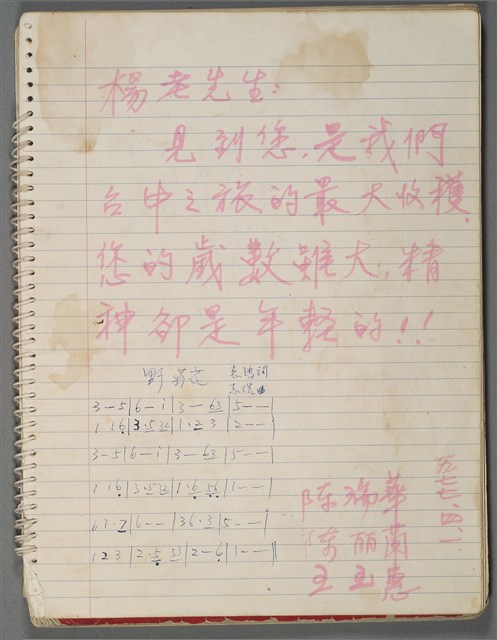 楊老先生：
見到您，是我們
台中之旅的最大收穫，
您的歲數雖大，精
神卻是年輕的！！
野菊花
3－5|6－i|3－63|5－－|
1 16|3·532|1·23|2－－|
3－5|6－i|3－63|5－－|
1 16|3·532|1·656|1－－|
61·2|6－－|36·3|5－－|
123|2·53|2－6|1－－||
陈瑞華
陈丽蘭
王玉惠
九七七、四、一